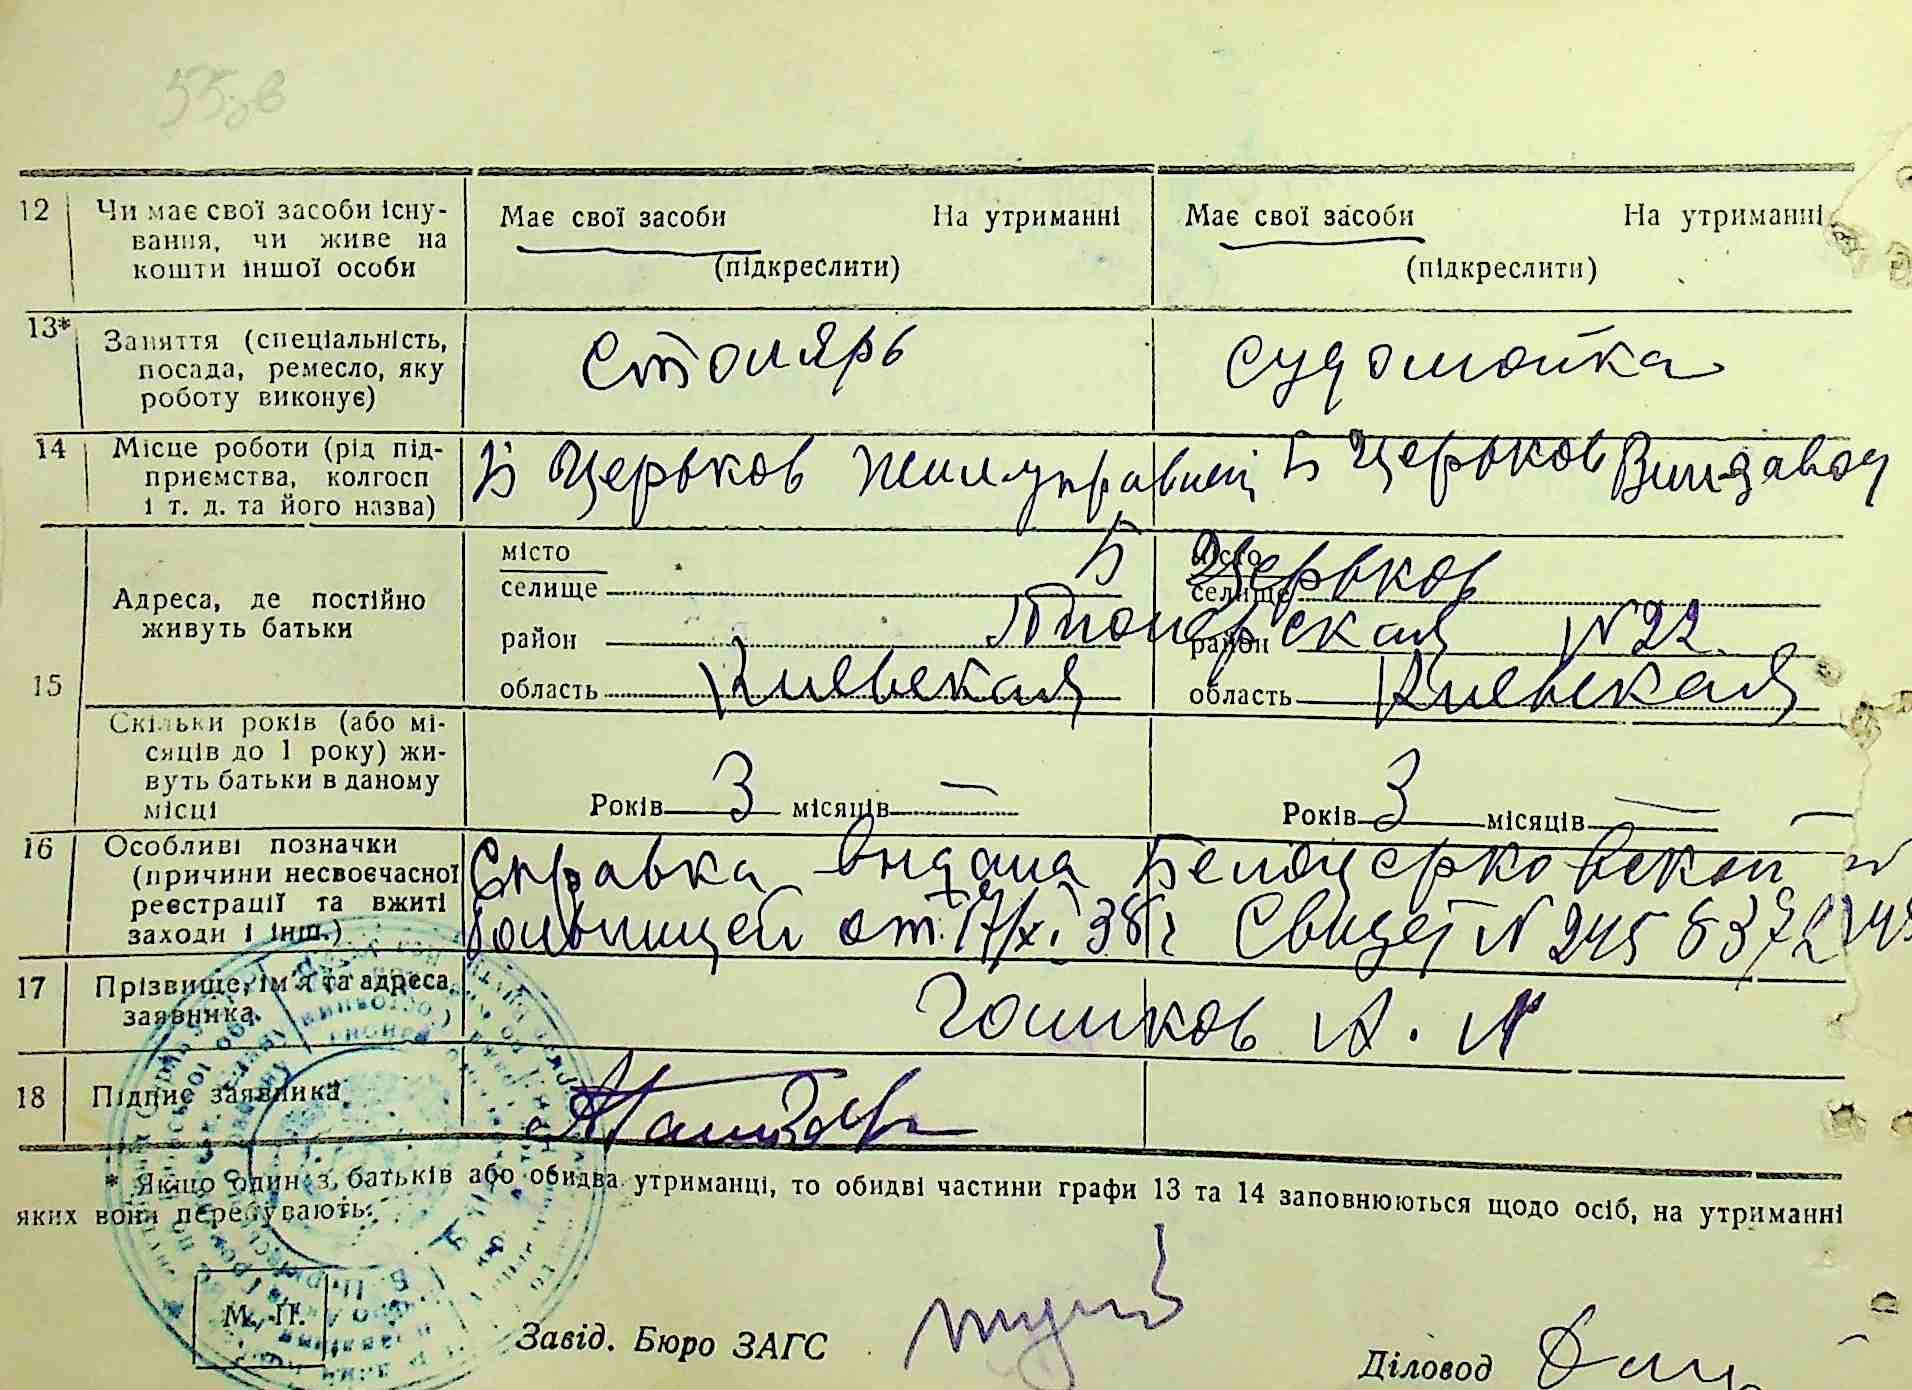 12 Чи має свої засоби існу-
вання, чи живе на
кошти іншої особи
Має свої засоби На утриманні
(підкреслити)
Має свої засоби На утриманні
(підкреслити)
13* Заняття (спеціальність,
посада, ремесло, яку
роботу виконує)
Столярь
Судомойка
14 Місце роботи (рід під-
приємства, колгосп
і т. д. та його назва)
Б Церьков Жилуправлен
Б Церьков
15 Адреса, де постійно
живуть батьки
місто
селище
район
область Киевская
місто
селище
район
область Киевская
Б Церьков
Пионерская N 22.
Скільки років (або мі-
сяців до 1 року) жи-
вуть батьки в даному
місці
Років 3 місяців —
Років 3 місяців —
16 Особливі позначки
(причини несвоєчасної
реєстрації та вжиті
заходи і інш.)
Справка выдана Белоцерковской
больницей от 17/XI 38 г Свидет N
17 Прізвище, ім'я та адреса
заявника
А.
18 Підпис заявника
* Якщо один з батьків або обидва утриманці, то обидві частини графи 13 та 14 заповнюються щодо осіб, на утриманні
яких вони перебувають.
М. П.
Завід. Бюро ЗАГС
Діловод